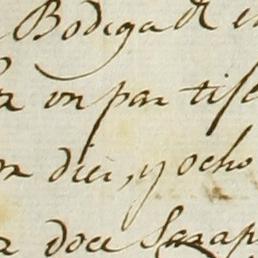 Bodega de
un par tise
on diez, y ocho
doce Sarap